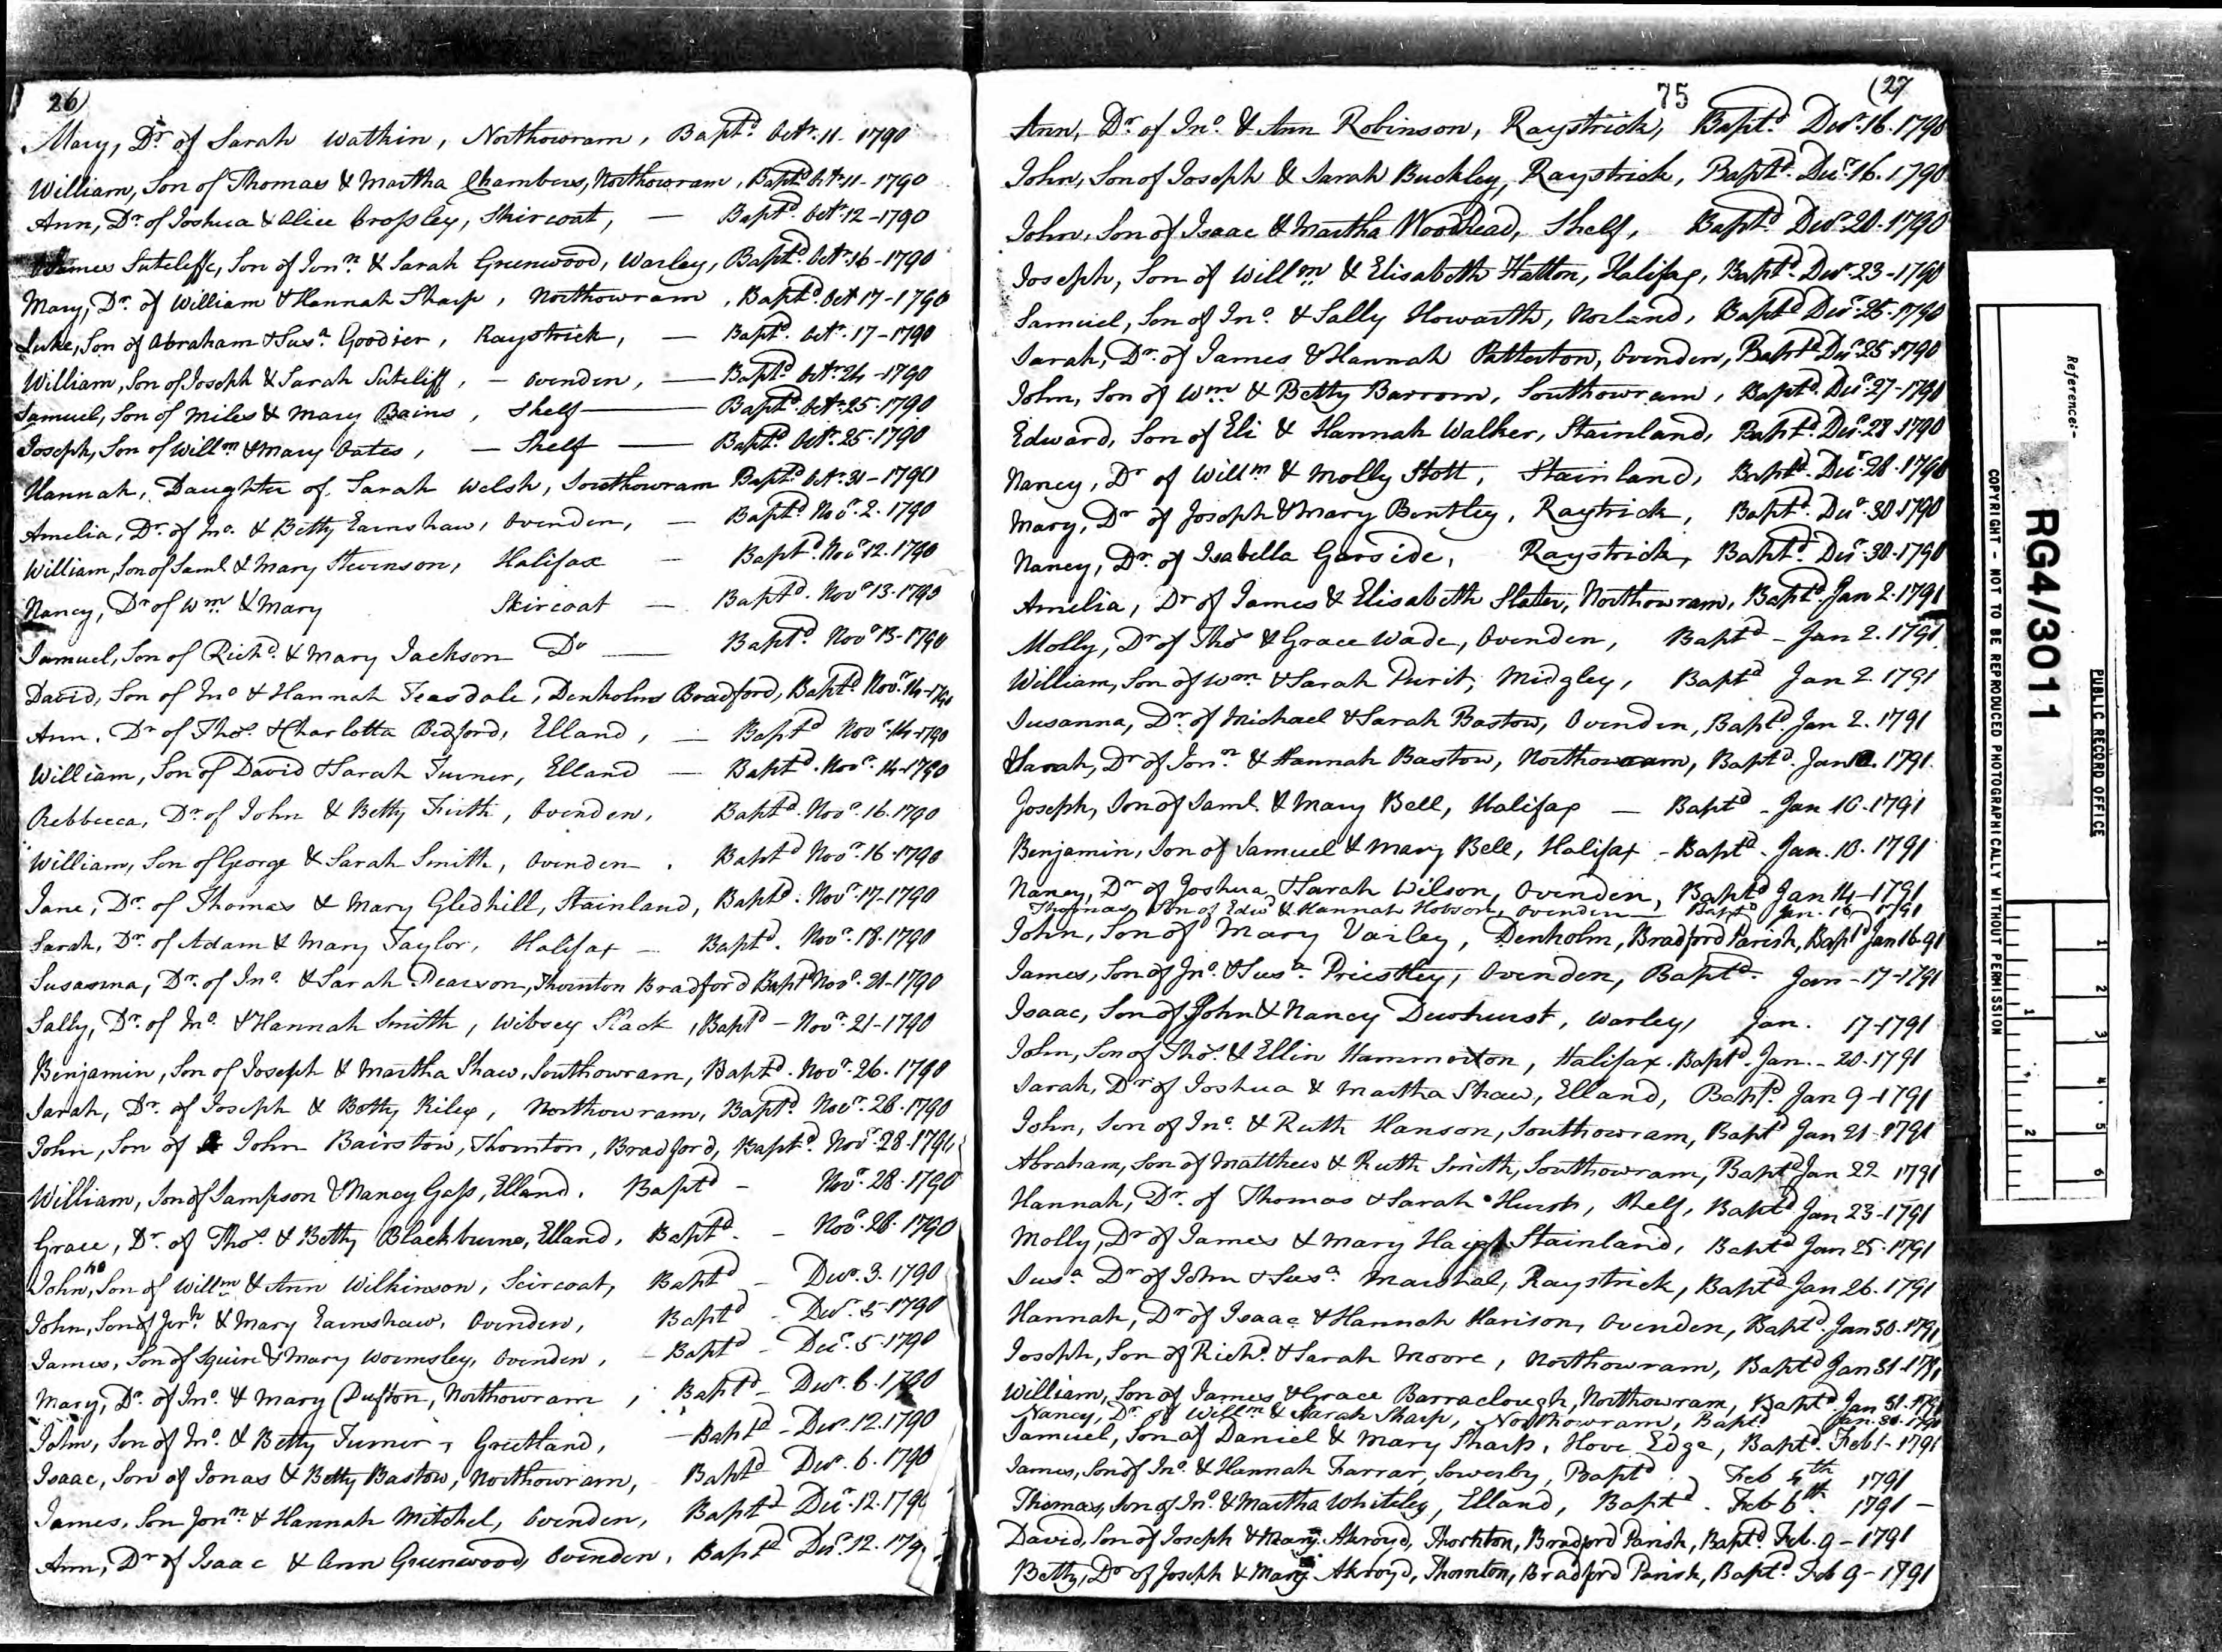 26)
Mary, Dr. of Sarah Wathin, Northowram, Baptd. Octr. 11 - 1790
William, Son of Thomas & Martha Chambers, Northowram, Baptd Octr 11 - 1790
Ann, Dr. of Joshua & Alice Crossley, Skircoat, — Baptd. Octr 12 - 1790
James Sutcliffe, Son of Jonn. & Sarah Greenwood, Warley, Baptd. Octr. 16 - 1790
Mary, Dr. of William & Hannah Sharp, Northowram, Baptd. Oct 17 - 1790
Luke, Son of Abraham & Susa. Goodier, Raystrick, — Baptd. Octr. 17 - 1790
William, Son of Joseph & Sarah Sutcliff, - Ovenden, — Baptd. Octr. 24 - 1790
Samuel, Son of Miles & Mary Bains, Shelf — Baptd. Octr. 25. 1790
Joseph, Son of Willm & Mary Oates, — Shelf — Baptd. Octr. 25. 1790
Hannah, Daughter of Sarah Welsh, Southowram Baptd Octr. 31 - 1790
Amelia, Dr. of Jno. & Betty Earnshaw, Ovenden, — Baptd Novr. 2. 1790
William, Son of Saml. & Mary Stevenson, Halifax — Baptd. Novr. 12. 1790
Nancy, Dr of Wm. & Mary Skircoat — Baptd. Novr 13. 1790
Samuel, Son of Richd. & Mary Jackson Do — Baptd. Novr 13 - 1790
David, Son of Jno & Hannah Teasdale, Denholme Bradford, Baptd Novr. 14 - 1790
Ann, Dr of Thos. & Charlotta Bedford, Elland, — Baptd Novr. 14 - 1790
William, Son of David & Sarah Turner, Elland — Baptd. Novr. 14 - 1790
Rebbecca, Dr. of John & Betty Firth, Ovenden, Baptd. Novr. 16. 1790
William, Son of George & Sarah Smith, Ovenden, Baptd Novr. 16. 1790
Jane, Dr. of Thomas & Mary Gledhill, Stainland, Baptd. Novr. 17 - 1790
Sarah, Dr. of Adam & Mary Taylor, Halifax — Baptd. Novr. 18. 1790
Susanna, Dr. of Jno. & Sarah Pearson, Thornton Bradford Baptd Novr. 21 - 1790
Sally, Dr. of Jno. & Hannah Smith, Wibsey Slack, Baptd - Novr. 21 - 1790
Benjamin, Son of Joseph & Martha Shaw, Southowram, Baptd. Novr. 26. 1790
Sarah, Dr. of Joseph & Betty Riley, Northowram, Baptd. Novr. 28. 1790
John, Son of John Bairstow, Thornton, Bradford, Baptd. Novr. 28. 1790
William, Son of Sampson & Nancy Gass, Elland, Baptd — Novr. 28. 1790
Grace, Dr. of Thos. & Betty Blackburne, Elland, Baptd. — Novr. 28. 1790
John, Son of Willm & Ann Wilkinson, Scircoat, Baptd — Decr. 3. 1790
John, Son of Jonn. & Mary Earnshaw, Ovenden, Baptd — Decr. 5. 1790
James, Son of Squire & Mary Wormsley, Ovenden, - Baptd — Decr. 5. 1790
Mary, Dr. of Jno. & Mary Dufton, Northowram, Baptd — Decr. 6. 1790
John, Son of Jno. & Betty Turner, Greetland, — Baptd — Decr. 12. 1790
Isaac, Son of Jonas & Betty Bastow, Northowram, Baptd Decr. 6. 1790
James, Son Jonn. & Hannah Mitchel, Ovenden, Baptd — Decr. 12. 1790
Ann, Dr of Isaac & Ann Greenwood, Ovenden, Baptd Decr. 12. 179
75 (27
Ann, Dr. of Jno. & Ann Robinson, Raystrick, Baptd. Decr. 16. 1790
John, Son of Joseph & Sarah Buckley, Raystrick, Baptd. Decr. 16. 1790
John, Son of Isaac & Martha Woodhead, Shelf, Baptd Decr. 20. 1790
Joseph, Son of Willm & Elisabeth Hatton, Halifax, Baptd. Decr. 23 - 1790
Samuel, Son of Jno. & Sally Howarth, Norland, Baptd Decr. 25. 1790
Sarah, Dr. of James & Hannah Patterton, Ovenden, Baptd Decr. 25. 1790
John, Son of Wm. & Betty Barrom, Southowram, Baptd. Decr. 27 - 1790
Edward, Son of Eli & Hannah Walker, Stainland, Baptd. Decr. 28. 1790
Nancy, Dr of Willm & Molly Stott, Stainland, Baptd. Decr. 28. 1790
Mary, Dr of Joseph & Mary Bentley, Raytrick, Baptd. Decr. 30. 1790
Nancy, Dr. of Isabella Garside, Raystrick, Baptd. Decr. 30. 1790
Amelia, Dr of James & Elisabeth Slater, Northowram, Baptd. Jan 2. 1791
Molly, Dr of Thos & Grace Wade, Ovenden, Baptd — Jan 2. 1791
William, Son of Wm. & Sarah Purit, Midgley, Baptd Jan 2. 1791
Susanna, Dr. of Michael & Sarah Bastow, Ovenden, Baptd. Jan 2. 1791
Sarah, Dr of Jonn. & Hannah Bastow, Northowram, Baptd. Jan 2. 1791
Joseph, Son of Saml. & Mary Bell, Halifax — Baptd — Jan 10. 1791
Benjamin, Son of Samuel & Mary Bell, Halifax - Baptd - Jan. 10. 1791
Nancy, Dr of Joshua & Sarah Wilson, Ovenden, Baptd Jan 14 - 1791
Thomas, Son of Edwd & Hannah Hobson, Ovenden — Baptd Jan. 16 1791
John, Son of Mary Varley, Denholm, Bradford Parish, Baptd Jan 16. 91
James, Son of Jno. & Susa. Priestley, Ovenden, Baptd. Jan - 17 - 1791
Isaac, Son of John & Nancy Dewhurst, Warley, Jan. 17 - 1791
John, Son of Thos. & Ellin Hammerton, Halifax. Baptd. Jan. - 20. 1791
Sarah, Dr of Joshua & Martha Shaw, Elland, Baptd. Jan 9 - 1791
John, Son of Jno. & Ruth Hanson, Southowram, Baptd Jan 21 - 1791
Abraham, Son of Matthew & Ruth Smith, Southowram, Baptd Jan 22 1791
Hannah, Dr. of Thomas & Sarah Hursh, Shelf, Baptd. Jan 23 - 1791
Molly, Dr of James & Mary Stainland, Baptd Jan 25. 1791
Susa Dr of John & Susa. Marshal, Raystrick, Baptd Jan 26. 1791
Hannah, Dr of Isaac & Hannah Harison, Ovenden, Baptd. Jan 30. 1791
Joseph, Son of Richd. & Sarah Moore, Northowram, Baptd Jan 31 - 1791
William, Son of James & Grace Barraclough, Northowram, Baptd. Jan 31. 1791
Nancy, Dr. of Willm & Sarah Sharp, Northowram, Baptd Jan. 30. 1791
Samuel, Son of Daniel & Mary Sharp, Hove Edge, Baptd. Feb 1 - 1791
James, Son of Jno. & Hannah Farrar, Sowerby, Baptd. Feb 4th 1791
Thomas, Son of Jno. & Martha Whiteley, Elland, Baptd. Feb 6th. 1791 —
David, Son of Joseph & Mary Akroyd, Thornton, Bradford Parish, Baptd. Feb. 9 - 1791
Betty, Dr of Joseph & Mary Akroyd, Thornton, Bradford Parish, Baptd Feb 9 - 1791
Reference:-
RG4/3011
PUBLIC RECORD OFFICE
COPYRIGHT - NOT TO BE REPRODUCED PHOTOGRAPHICALLY WITHOUT PERMISSION
1 2 3 4 5 6
1 2